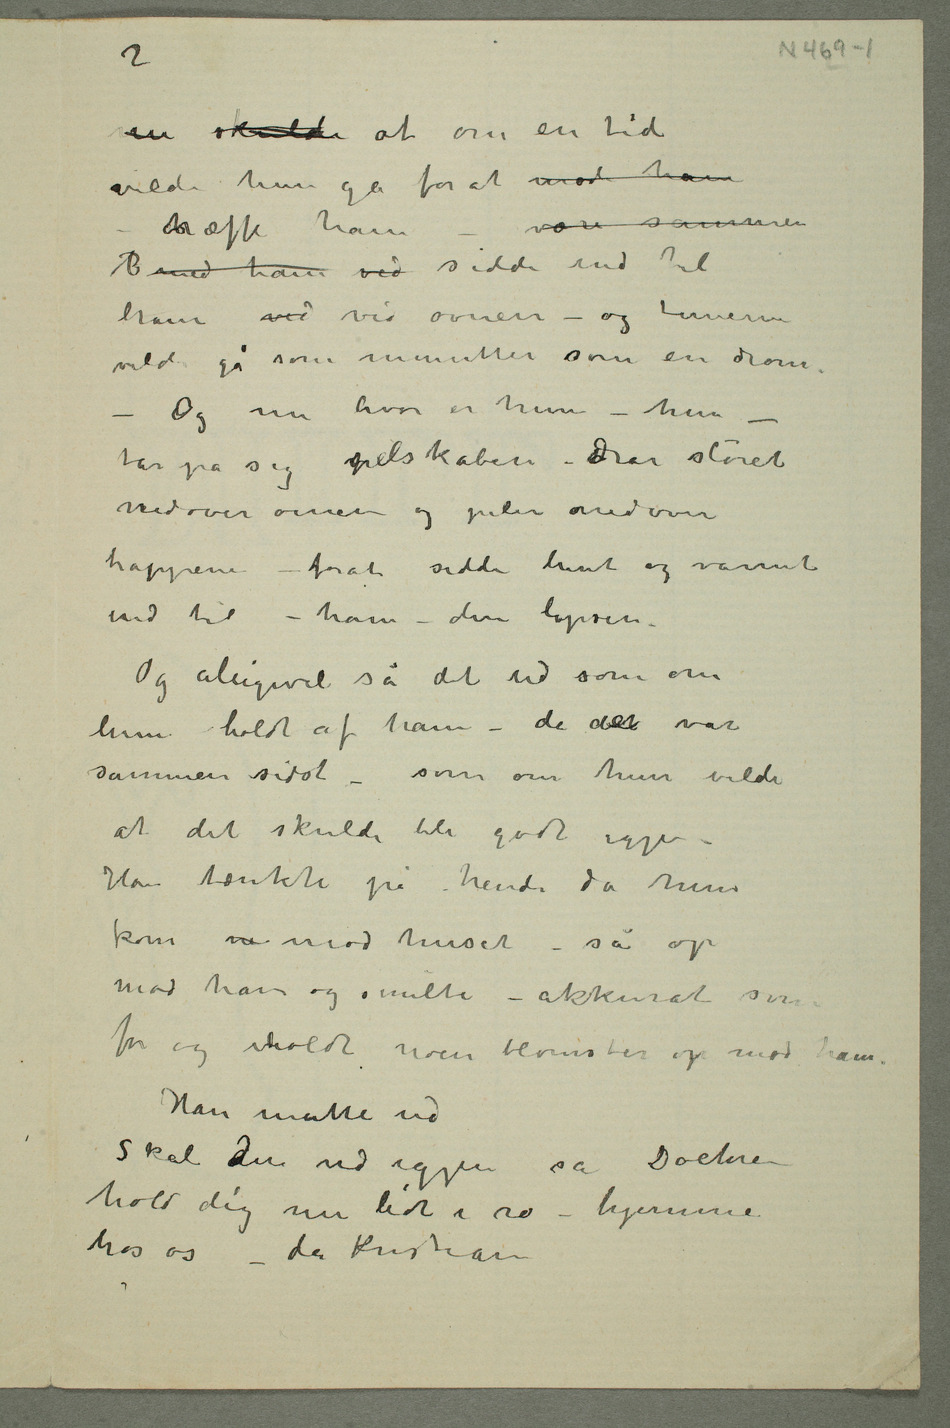 2
N 469-1
en skulde at om en tid
vilde hun gå forat møde ham
– træffe ham – være sammen
med ham ved sidde ind til
ham ved ved ovnen – og timerne
vilde gå som minutter som en drøm.
– Og nu hvor er hun – hun –
tar på sig pelskåben – drar sløret
nedover øinene og piler nedover
trappene – forat sidde lunt og varmt
ind til – ham – den lapsen.
Og aligevel så det ud som om
hun holdt af ham – da det var
sammen sidst – som om hun vilde
at det skulde bli godt igjen –
Han tænkte på hende da hun
kom mod huset – så op
mod ham og smilte – akkurat som
før og holdt noen blomster op mod ham.
Han måtte ud
Skal du ud igjen sa Doctoren
hold dig nu lidt i ro – hjemme
hos os – da Kristian